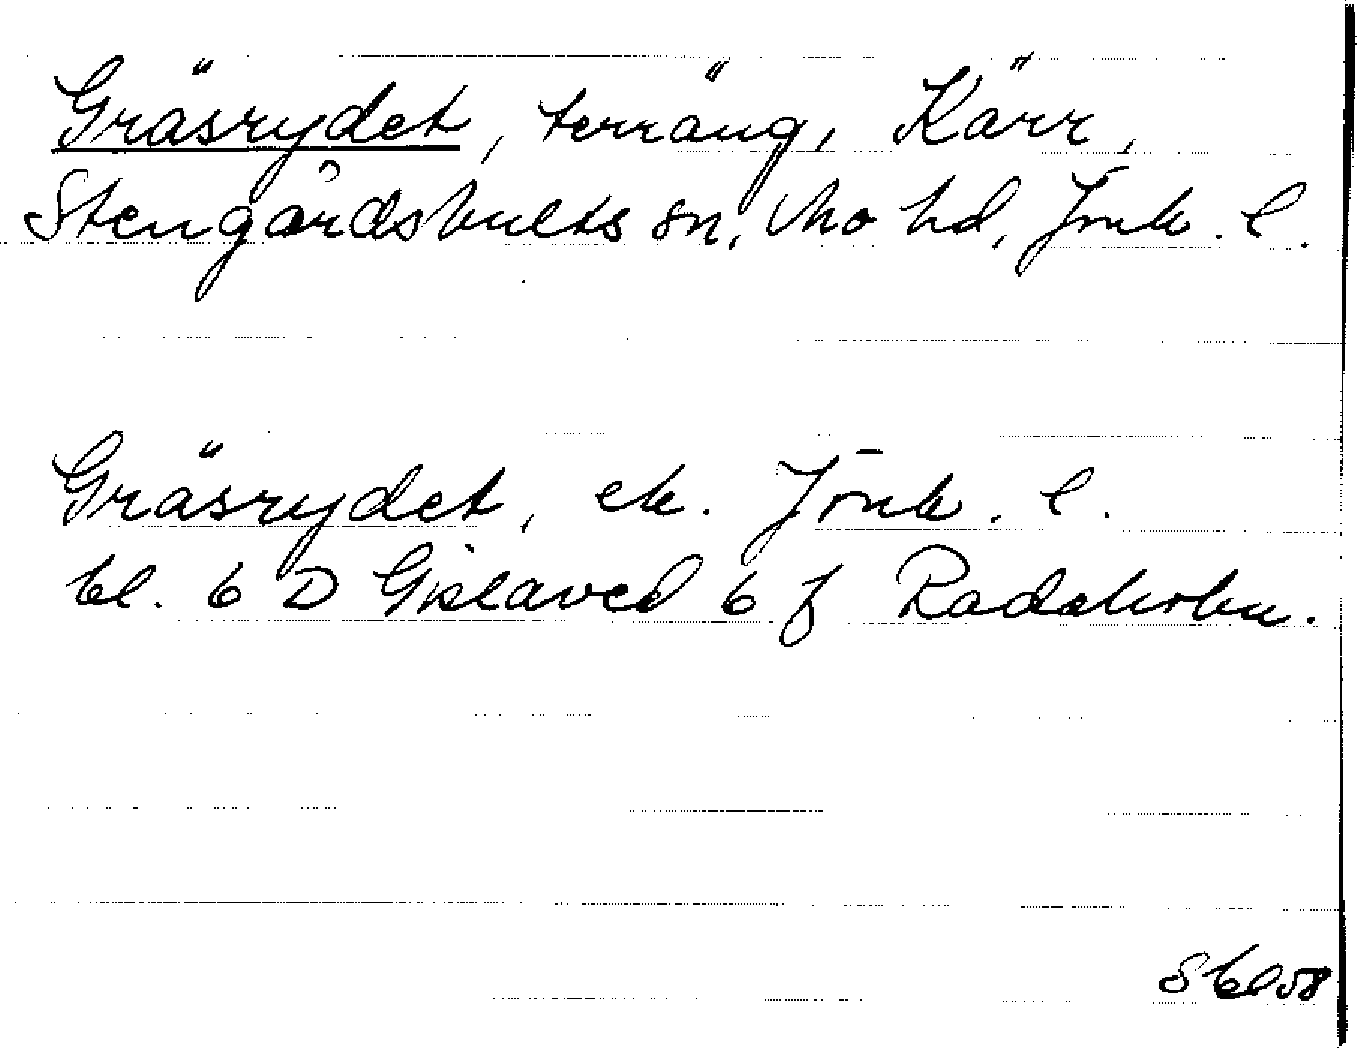 Gräsrydet, terräng, Kärr,
Stengårdshults sn, Mo hd, Jönk. l.
Gräsrydet, ek. Jönk. l.
bl. 6 D Gislaved 6 f Radaholm.